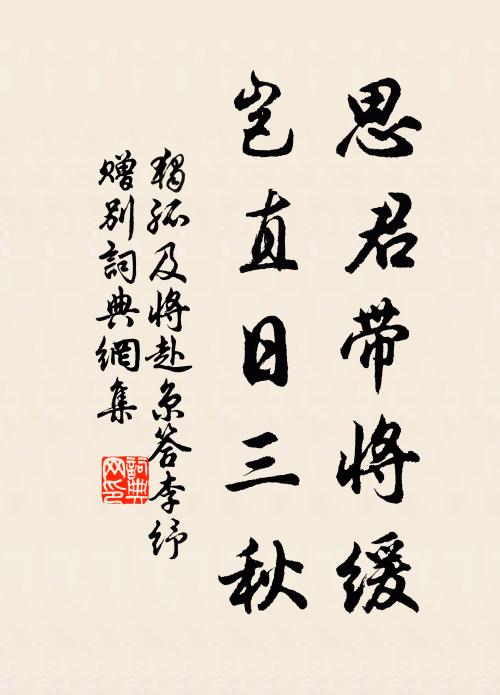 思君带将缓
岂直日三秋
独孤及将赴京答李纾
赠别词典网集
词典
网印